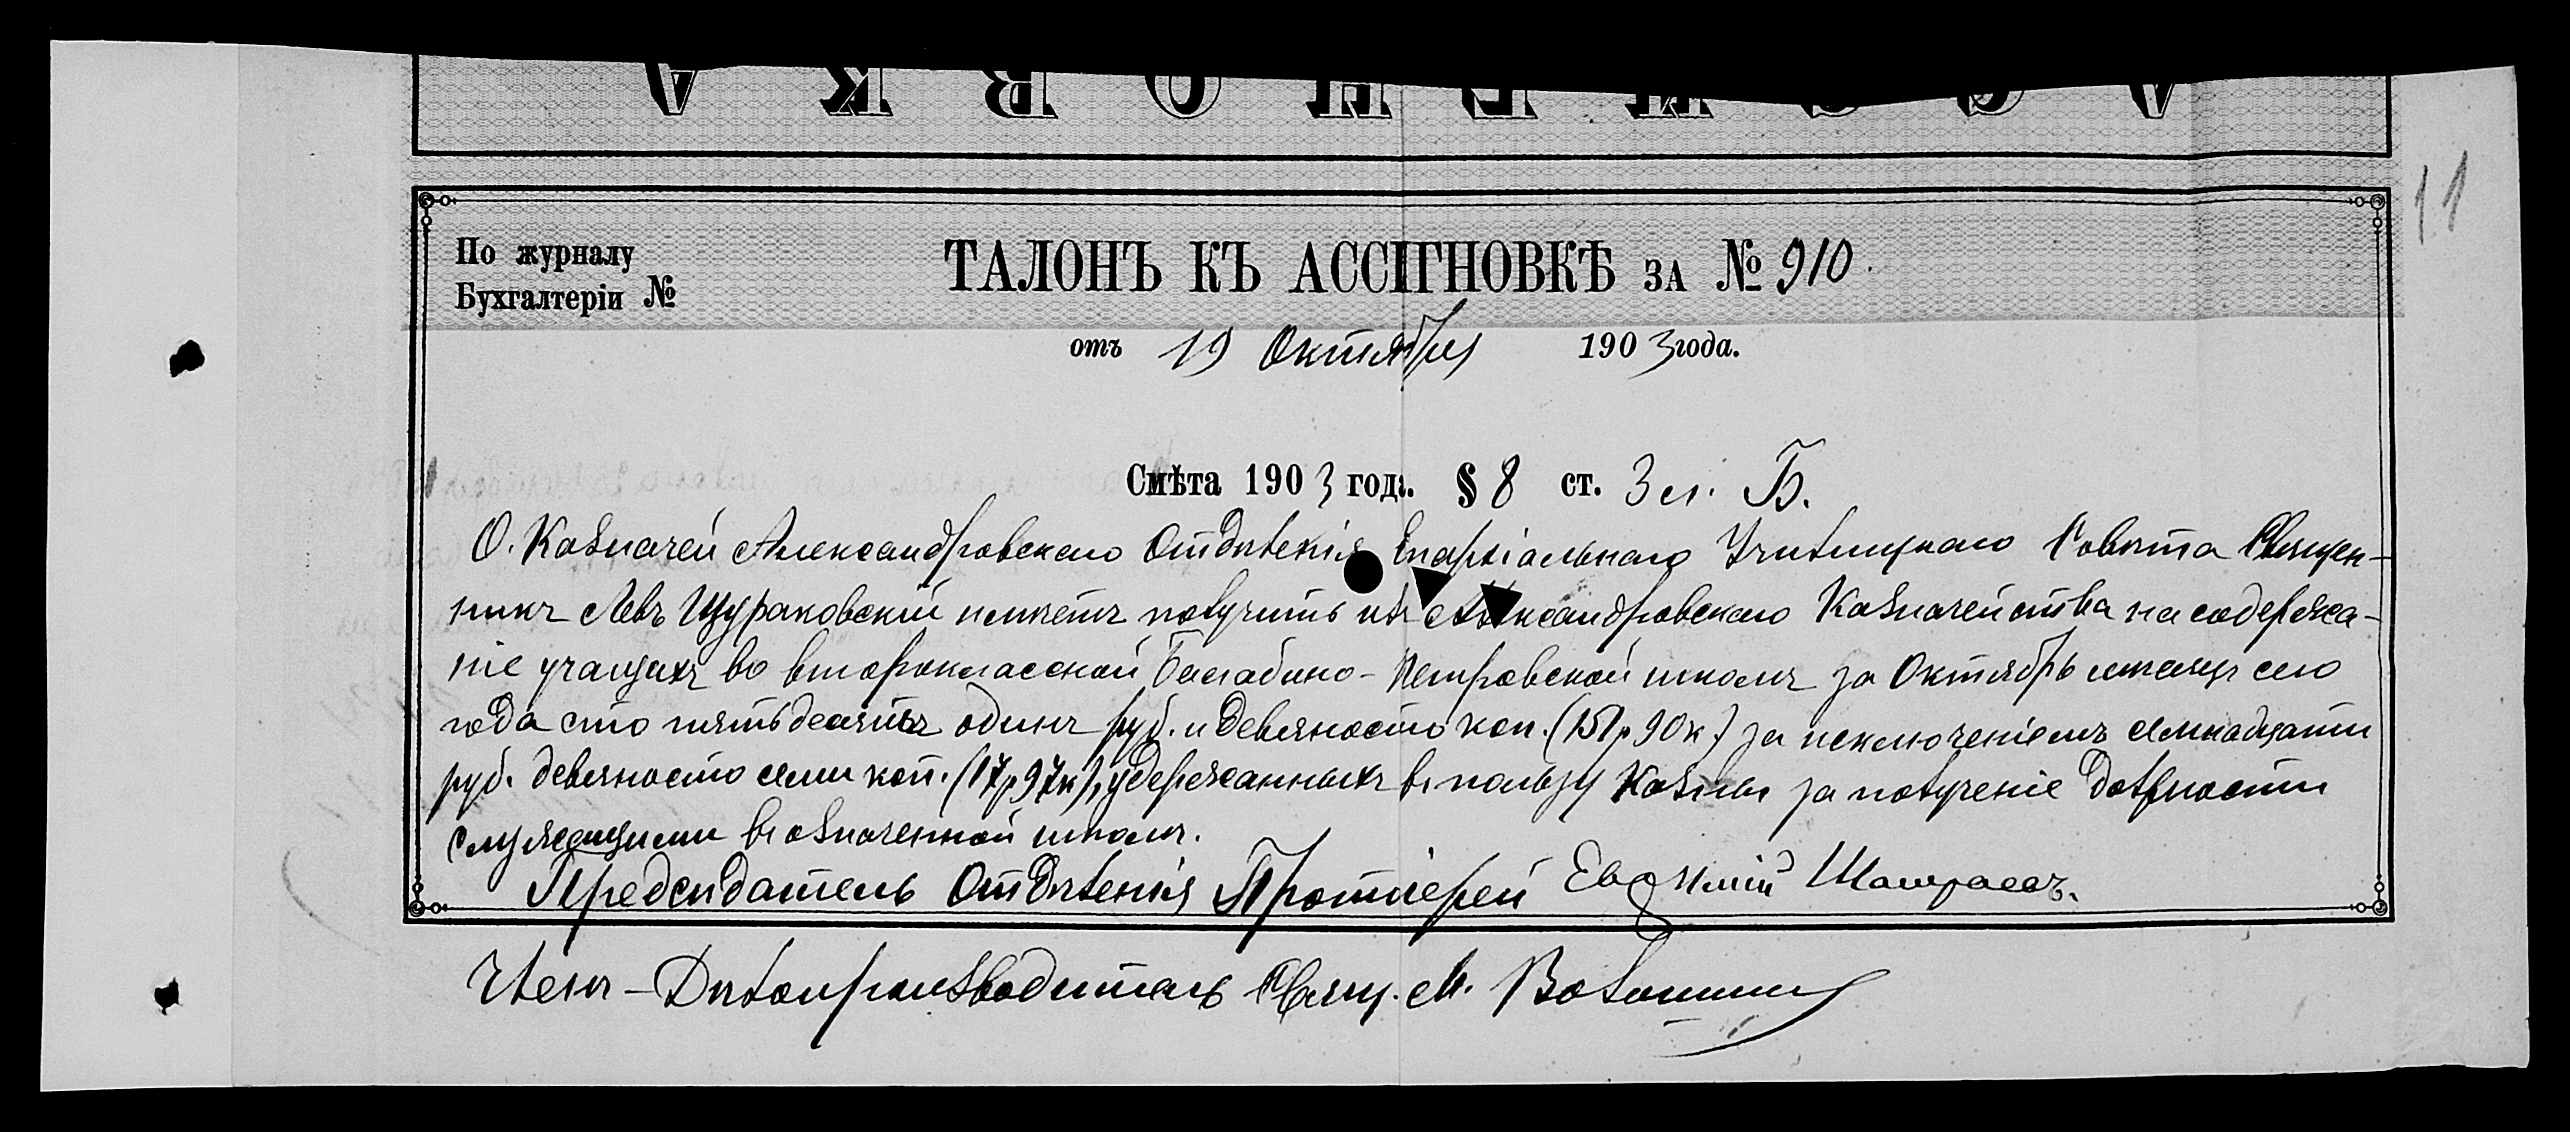 АССИГНОВКА
11
По журналу
Бухгалтеріи №
ТАЛОНЪ КЪ АССИГНОВКѢ ЗА № 910.
отъ 19 Октября 1903 года.
Смѣта 1903 года. § 8 ст. 3 л. Б.
О. Казначей Александровскаго Отдѣленія Епархіальнаго Училищнаго Совѣта Священ-
никъ Левъ Щураковскій имѣетъ получить изъ Александровскаго Казначейства на содержа-
ніе учащихъ во второклассной Балабино-Петровской школѣ за Октябрь мѣсяцъ сего
года сто пятьдесятъ одинъ руб. и девяносто коп. (151 р 90 к.) за исключеніемъ семнадцати
руб. девяносто семи коп. (17 р 97 к), удержанныхъ въ пользу Казны за полученіе должности
служащими въ означенной школѣ.
Предсѣдатель Отдѣленія Протоіерей Евѳимій
Членъ-Дѣлопроизводитель Свящ. М.